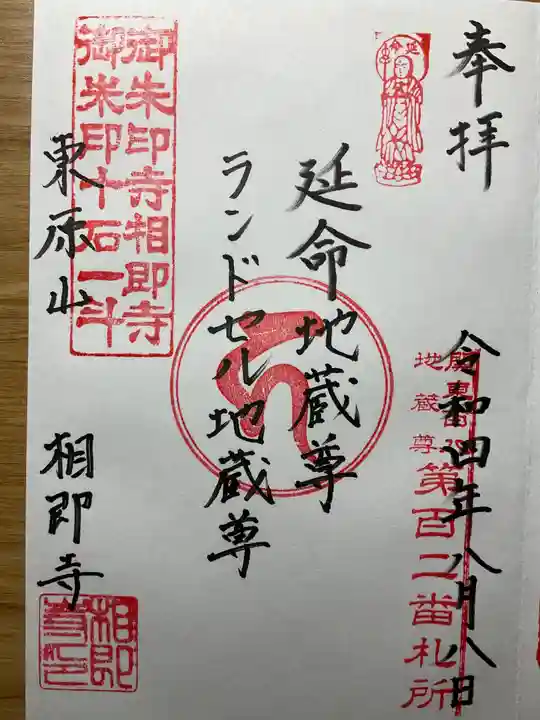 奉拝
令和四年八月八日
地蔵尊
第百二番札所
延命
延命地蔵尊
ランドセル地蔵尊
御朱印寺相即寺
御朱印十石一斗
東原山 相即寺
相即